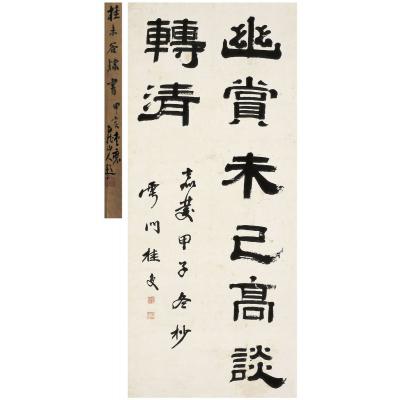 幽賞未已高談
轉清
嘉慶甲子冬杪
雩門桂馥
桂未谷隸書